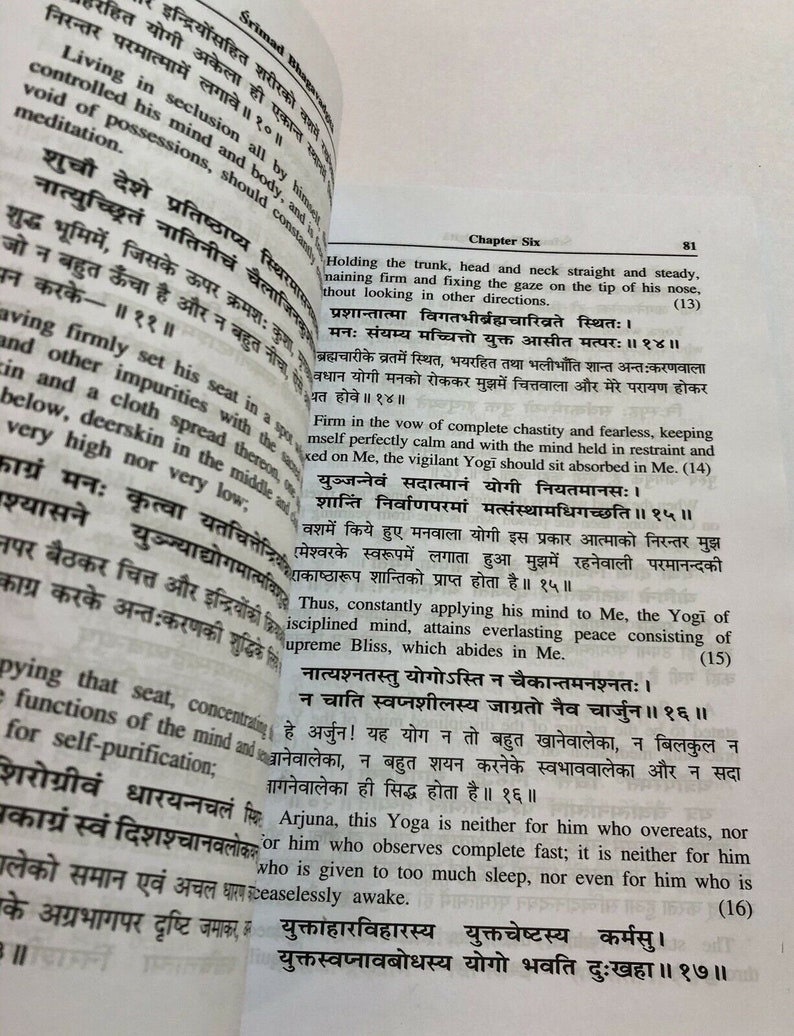 Śrīmad Bhagavadgītā
इन्द्रियोंसहित शरीरको वशमें
निरन्तर परमात्मामें लगावे॥ १०॥
Living in seclusion all by himself,
controlled his mind and body, and is
void of possessions, should constantly
meditation.
शुचौ देशे प्रतिष्ठाप्य
नात्युच्छ्रितं नातिनीचं
शुद्ध भूमिमें, जिसके ऊपर क्रमशः कुशा,
जो न बहुत ऊँचा है और न बहुत नीचा,
करके— ॥ ११॥
aving firmly set his seat in a spot
and other impurities with the
in and a cloth spread thereon,
below, deerskin in the middle and
very high nor very low;
काग्रं मनः कृत्वा
श्यासने
नपर बैठकर चित्त और इन्द्रियोंकी
काग्र करके अन्तःकरणकी शुद्धिके
pying that seat, concentrating
functions of the mind and
for self-purification;
शिरोग्रीवं धारयन्नचलं
काग्रं स्वं दिशश्चानवलोक
लेको समान एवं अचल धारण
के अग्रभागपर दृष्टि जमाकर,
Chapter Six 81
Holding the trunk, head and neck straight and steady,
naining firm and fixing the gaze on the tip of his nose,
thout looking in other directions. (13)
प्रशान्तात्मा विगतभीर्ब्रह्मचारिव्रते स्थितः।
मनः संयम्य मच्चित्तो युक्त आसीत मत्परः॥ १४॥
ब्रह्मचारीके व्रतमें स्थित, भयरहित तथा भलीभाँति शान्त अन्तःकरणवाला
वधान योगी मनको रोककर मुझमें चित्तवाला और मेरे परायण होकर
थत होवे॥ १४॥
Firm in the vow of complete chastity and fearless, keeping
mself perfectly calm and with the mind held in restraint and
xed on Me, the vigilant Yogī should sit absorbed in Me. (14)
युञ्जन्नेवं सदात्मानं योगी नियतमानसः।
शान्तिं निर्वाणपरमां मत्संस्थामधिगच्छति॥ १५॥
वशमें किये हुए मनवाला योगी इस प्रकार आत्माको निरन्तर मुझ
मेश्वरके स्वरूपमें लगाता हुआ मुझमें रहनेवाली परमानन्दकी
ाकाष्ठारूप शान्तिको प्राप्त होता है॥ १५॥
Thus, constantly applying his mind to Me, the Yogī of
isciplined mind, attains everlasting peace consisting of
upreme Bliss, which abides in Me. (15)
नात्यश्नतस्तु योगोऽस्ति न चैकान्तमनश्नतः।
न चाति स्वप्नशीलस्य जाग्रतो नैव चार्जुन॥ १६॥
हे अर्जुन! यह योग न तो बहुत खानेवालेका, न बिलकुल न
खानेवालेका, न बहुत शयन करनेके स्वभाववालेका और न सदा
ागनेवालेका ही सिद्ध होता है॥ १६॥
Arjuna, this Yoga is neither for him who overeats, nor
or him who observes complete fast; it is neither for him
who is given to too much sleep, nor even for him who is
ceaselessly awake. (16)
युक्ताहारविहारस्य युक्तचेष्टस्य कर्मसु।
युक्तस्वप्नावबोधस्य योगो भवति दुःखहा॥ १७॥